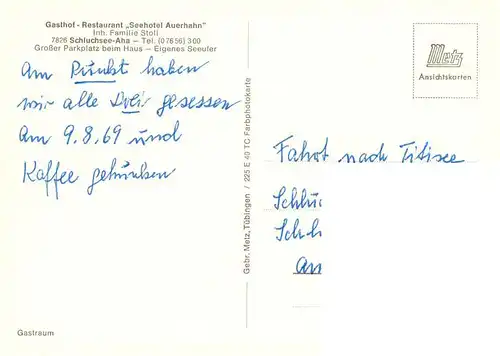 Gasthof - Restaurant „Seehotel Auerhahn"
Inh. Familie Stoll
7826 Schluchsee-Aha — Tel. (07656) 300
Großer Parkplatz beim Haus — Eigenes Seeufer
Am Punkt haben
wir alle Drei gesessen
am 9.8.69 und
Kaffee getrunken
Gastraum
Gebr. Metz, Tübingen / 225 E 40 TC Farbphotokarte
Metz
Ansichtskarten
Fahrt nach Titisee